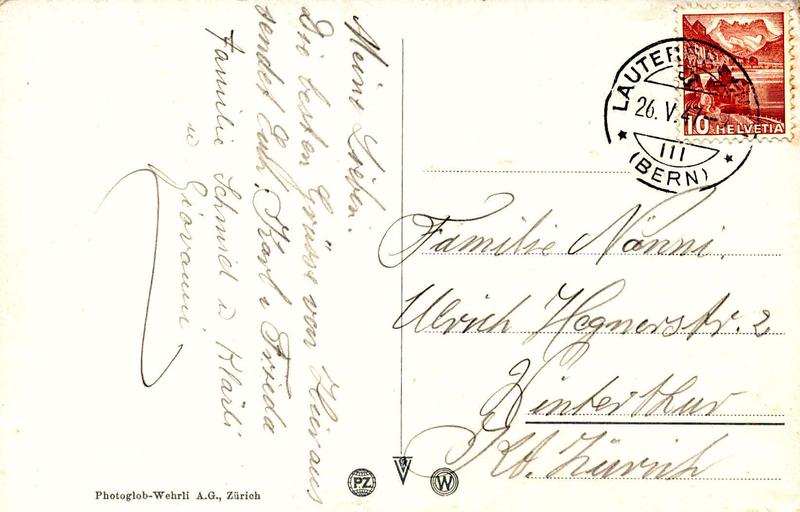 Meine Lieben.
Die besten Grüsse von Hieraus
sendet Euch, Karl u Frieda
Familie Schmid u Klärli
u Giovanni
LAUTERBRUNNEN
26. V. 47
III
(BERN)
10 HELVETIA
Familie Nänni,
Ulrich Hegnerstr. 2
Winterthur
Kt. Zürich
Photoglob-Wehrli A.G., Zürich
P.Z.
W